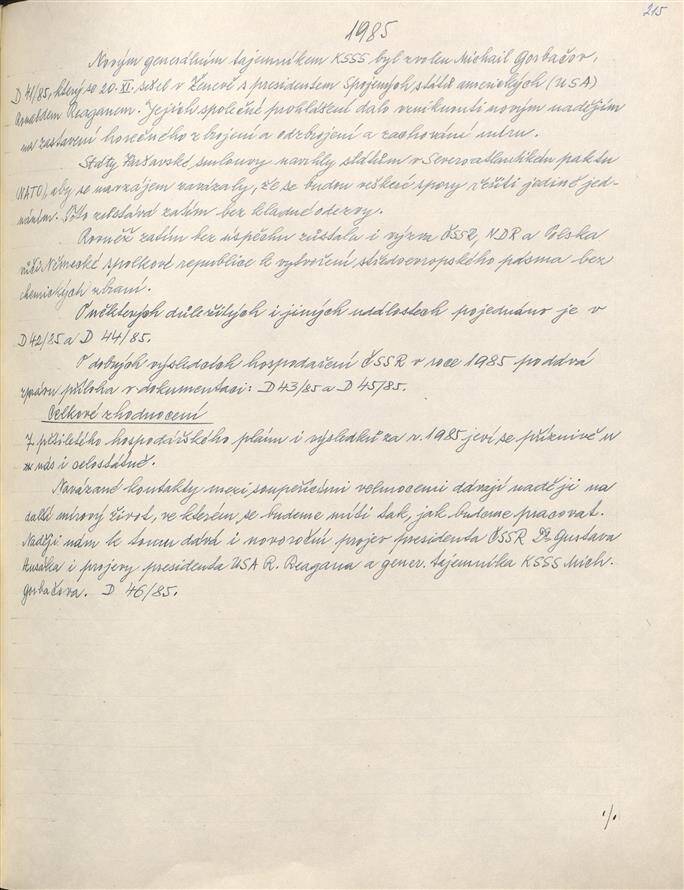 215
1985
Novým generálním tajemníkem KSSS byl zvolen Michail Gorbačov,
D 41/85, který se 20. XI. sešel v Ženevě s presidentem Spojených států amerických (USA)
Ronaldem Reaganem. Jejich společné prohlášení dalo vzniknouti novým nadějím
na zastavení horečného zbrojení a odzbrojení a zachování míru.
Státy Varšavské smlouvy navrhly státům v Severoatlantickém paktu
(NATO), aby se navzájem zavázaly, že se budou veškeré spory řešiti jedině jed-
náním. Toto zůstává zatím bez kladné odezvy.
Rovněž zatím bez úspěchu zůstala i výzva ČSSR, NDR a Polska
vůči Německé spolkové republice k vytvoření středoevropského pásma bez
chemických zbraní.
O některých důležitých i jiných událostech pojednáno je v
D 42/85 a D 44/85.
O dobrých výsledcích hospodaření ČSSR v roce 1985 podává
zprávu příloha v dokumentaci: D 43/85 a D 45/85.
Celkové zhodnocení
7. pětiletého hospodářského plánu i výsledků za r. 1985 jeví se příznivě u
nás i celostátně.
Navázané kontakty mezi soupeřícími velmocemi dávají naději na
další mírový život, ve kterém se budeme míti tak, jak budeme pracovat.
Naději nám k tomu dává i novoroční projev presidenta ČSSR Dr. Gustava
Husáka i projevy presidenta USA R. Reagana a gener. tajemníka KSSS Mich.
Gorbačova. D 46/85.
./.